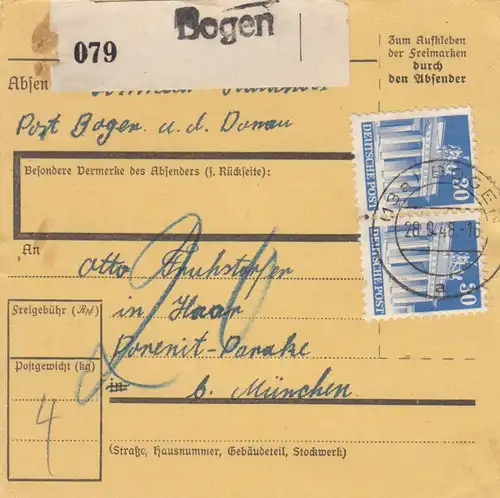 Bogen
079
Zum Aufkleben
der Freimarken
durch
den Absender
Absen
Post Bogen a. d. Donau
Besondere Vermerke des Absenders (s. Rückseite):
DEUTSCHE POST
30
28.9.48-16
a
DEUTSCHE POST
30
An
Otto
in Haar
Freigebühr (Rpf)
Postgewicht (kg)
4
in
b. München
(Straße, Hausnummer, Gebäudeteil, Stockwerk)